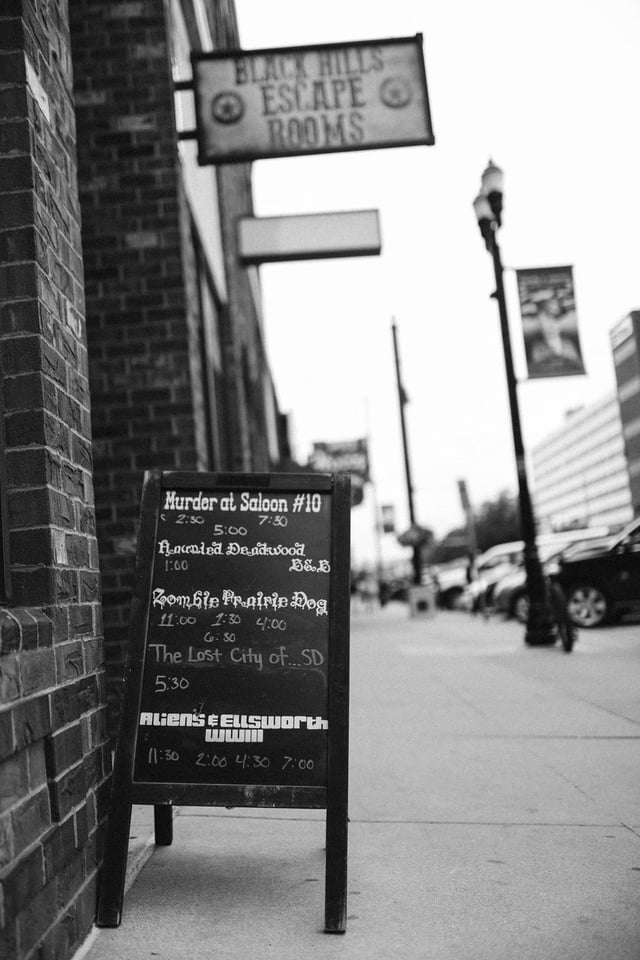 BLACK HILLS
ESCAPE
ROOMS
Murder at Saloon #10
2:30 7:30
5:00
Haunted Deadwood
B&B
1:00
Zombie Prairie Dog
11:00 1:30 4:00
6:30
The Lost City of...SD
5:30
Aliens & Ellsworth
WWIII
11:30 2:00 4:30 7:00